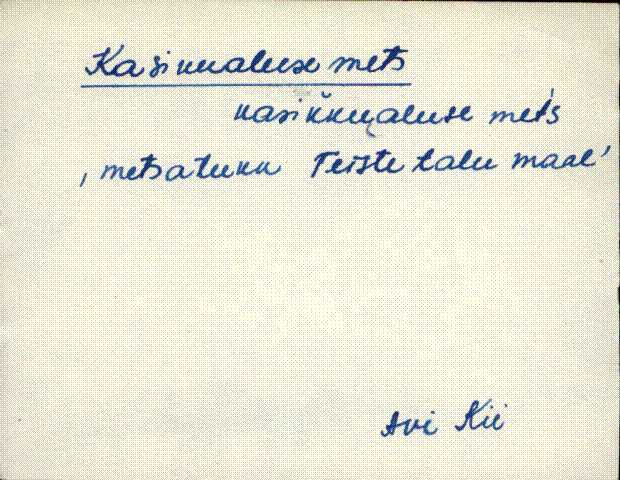 Kasikualuse mets
kasik̀kualuse met́s
, metsatukk Teiste talu maal'
Avi Kii